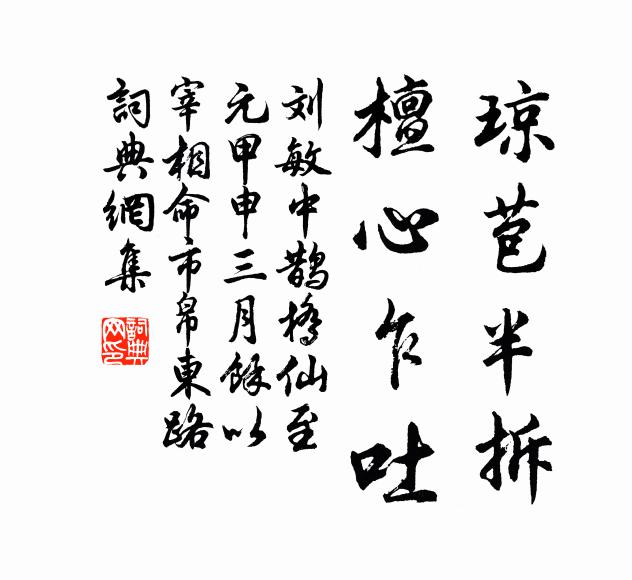 琼苞半拆
檀心乍吐
刘敏中鹊桥仙至
元甲申三月馀以
宰相命市帛東路
詞典網集
詞典网印